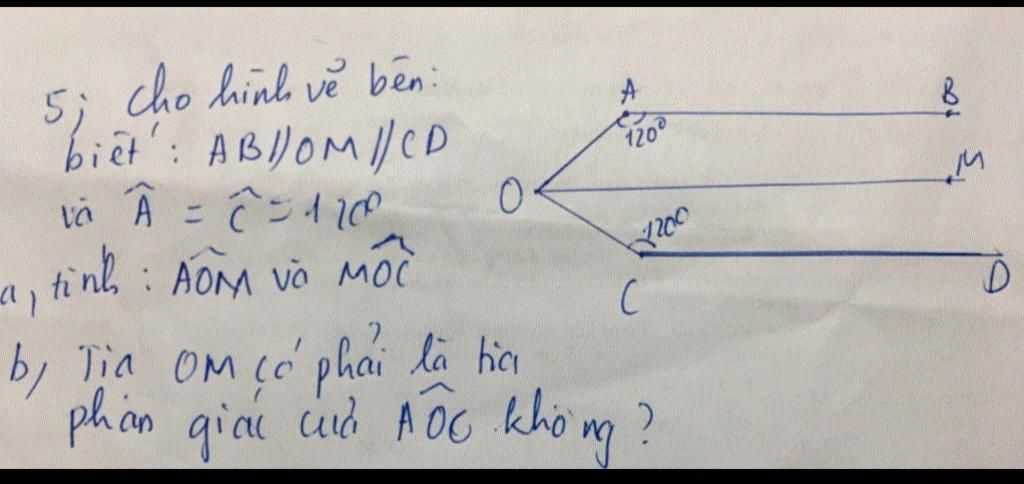 5; Cho hình vẽ bên:
biết : AB//OM//CD
và Â = Ĉ = 120⁰
a, tính : AÔM và MÔC
b, Tia OM có phải là tia
phân giác của AÔC không ?
A
B
120⁰
M
O
120⁰
C
D